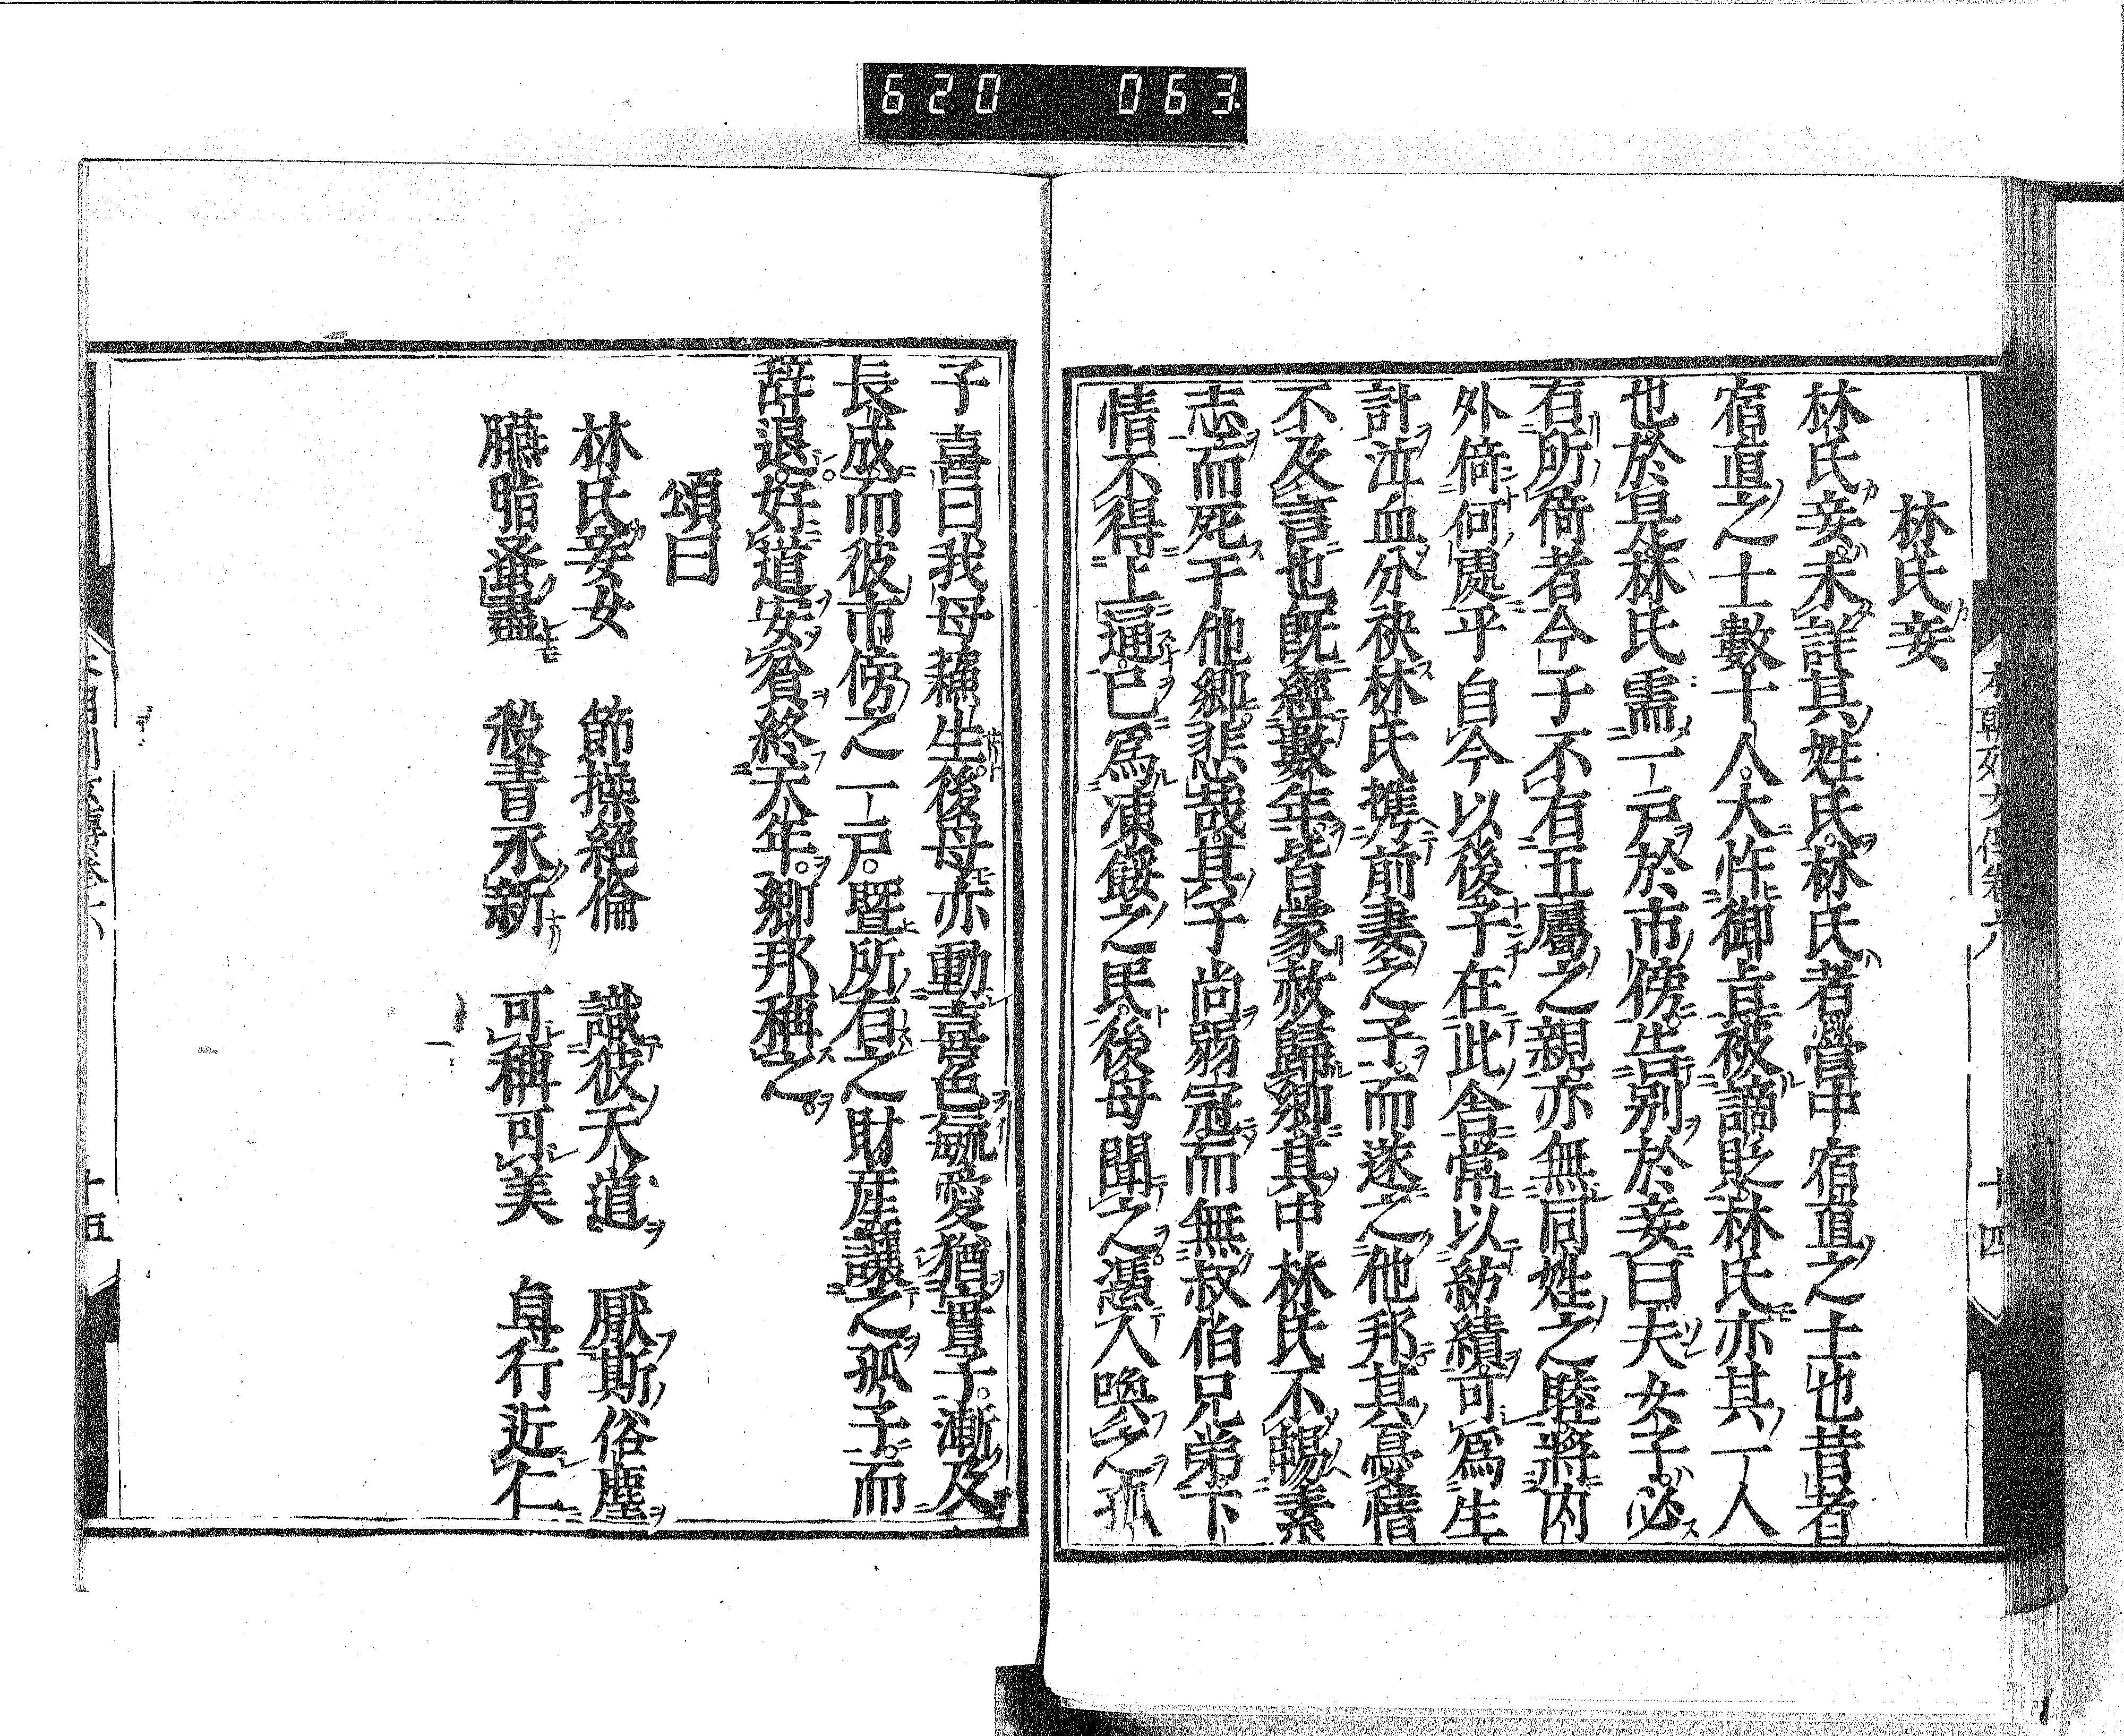 620 063
本朝列女傳卷六 十四
林氏妾
林氏妾未詳其姓氏林氏者營中宿直之士也昔者
宿直之士數十人大忤御旨被謫貶林氏亦其一人
也於是林氏需一戸於市傍告別於妾曰夫女子必
有所倚者今子不有五屬之親亦無同姓之睦將内
外倚何處乎自今以後子在此舎常以紡績可爲生
計泣血分袂林氏携前妻之子而遂之他邦其憂情
不及言也既經數年皆蒙赦歸郷其中林氏不暢素
志而死于他郷悲哉其子尚弱冠而無叔伯兄弟下
情不得上通已爲凍餒之民後母聞之憑人喚之孤
子喜曰我母蘓生後母亦動喜色毓愛猶實子漸及
長成而彼市傍之一戸曁所有之財産讓之孤子而
辞退好道安貧終天年郷邦稱之
頌曰
林氏妾女 節操絕倫 識彼天道 厭斯俗塵
臙脂蚤盡 殺青永新 可稱可美 身行近仁
十五